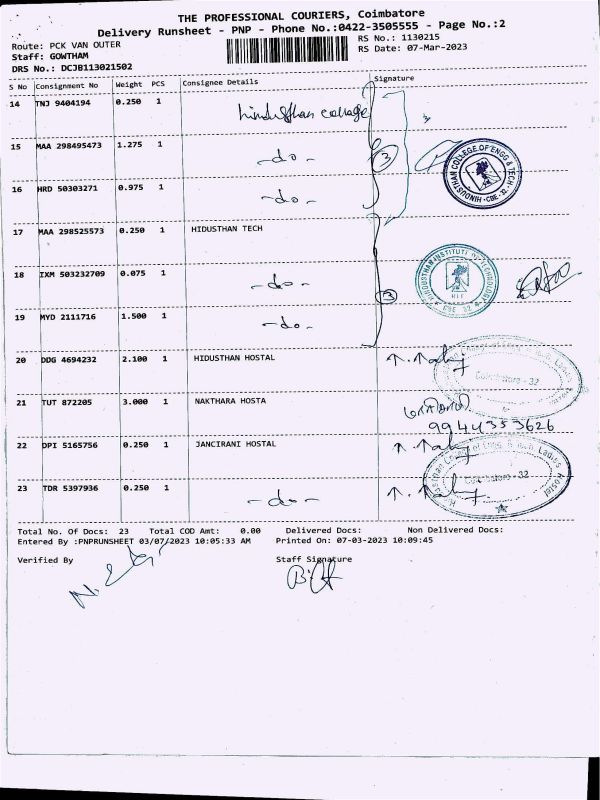 THE PROFESSIONAL COURIERS, Coimbatore
Delivery Runsheet - PNP - Phone No.:0422-3505555 - Page No.:2
Route: PCK VAN OUTER
RS No.: 1130215
Staff: GOWTHAM
RS Date: 07-Mar-2023
DRS No.: DCJB113021502
S No Consignment No Weight PCS Consignee Details Signature
14 TNJ 9404194 0.250 1 hindusthan college
15 MAA 298495473 1.275 1 -do- 3
16 HRD 50303271 0.975 1 -do-
HINDUSTHAN COLLEGE OF ENGG & TECH CBE - 32
17 MAA 298525573 0.250 1 HIDUSTHAN TECH
18 IXM 503232709 0.075 1 -do- 3
HINDUSTHAN INSTITUTE OF TECHNOLOGY HIT CBE 32
19 MYD 2111716 1.500 1 -do-
20 DDG 4694232 2.100 1 HIDUSTHAN HOSTAL
Coimbatore - 32
21 TUT 872205 3.000 1 NAKTHARA HOSTA
9944353626
22 DPI 5165756 0.250 1 JANCIRANI HOSTAL
Ladies Hostel
Coimbatore - 32
23 TDR 5397936 0.250 1 -do-
Total No. Of Docs: 23 Total COD Amt: 0.00 Delivered Docs: Non Delivered Docs:
Entered By :PNPRUNSHEET 03/07/2023 10:05:33 AM Printed On: 07-03-2023 10:09:45
Verified By Staff Signature